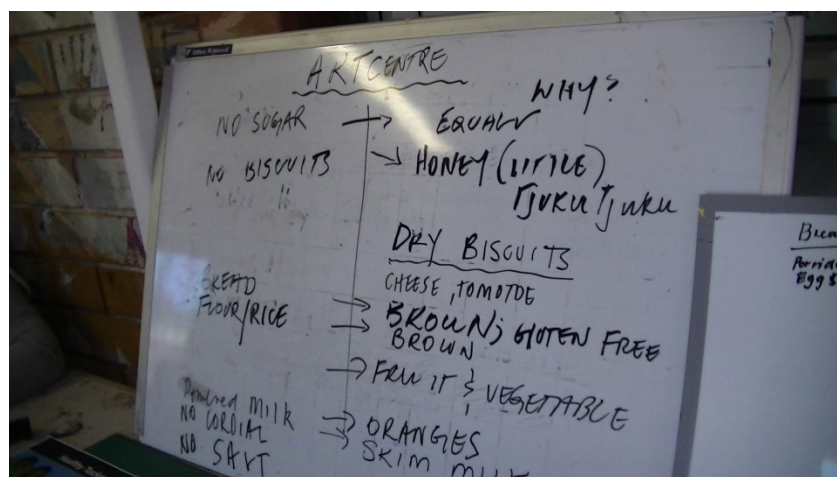 ARTCENTRE
WHY?
NO SUGAR → EQUAL
NO BISCUITS → HONEY (LITTLE)
Tjuku Tjuku
DRY BISCUITS
CHEESE, TOMOTOE
BREAD → BROWN; GLOTEN FREE
FLOUR/RICE → BROWN
→ FRUIT & VEGETABLE
Powdered MILK
NO CORDIAL → ORANGES
NO SALT → SKIM MILK
Brea
Porrid
Egg S